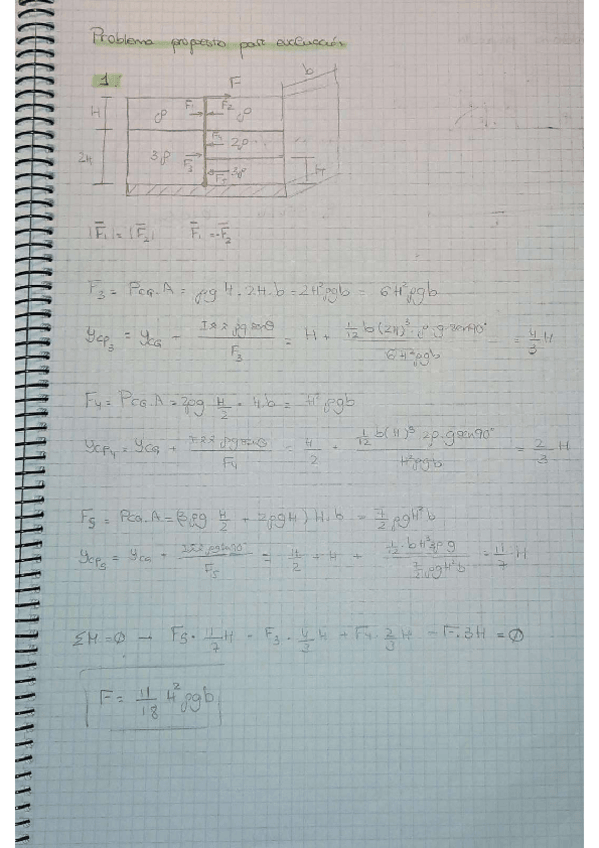 Problema propuesto para evaluación
1.
b
F
H
ρ
F₁
F₂
ρ
2ρ
2H
3ρ
F₃
3ρ
H
|F̄₁| = |F̄₂| F̄₁ = -F̄₂
F₃ = P_CG.A = ρg H . 2H . b = 2H²ρgb = 6H²ρgb
y_CP₃ = y_CG + Ixx ρg senθ / F₃ = H + 1/12 b(2H)³ . ρ . g sen90° / 6H²ρgb = 4/3 H
F₄ = P_CG.A = 2ρg H/2 . H.b = H²ρgb
y_CP₄ = y_CG + Ixx ρg senθ / F₄ = H/2 + 1/12 b(H)³ 2ρ.g sen90° / H²ρgb = 2/3 H
F₅ = P_CG.A = (3ρg H/2 + 2ρgH) H.b = 7/2 ρgH²b
y_CP₅ = y_CG + Ixx ρg sen90° / F₅ = H/2 + H + 1/12 . bH³3ρg / 7/2 ρgH²b = 11/7 . H
ΣM = 0 → F₅ . 11/7 H - F₃ . 4/3 H + F₄ . 2/3 H - F . 3H = 0
F = 11/18 H²ρgb